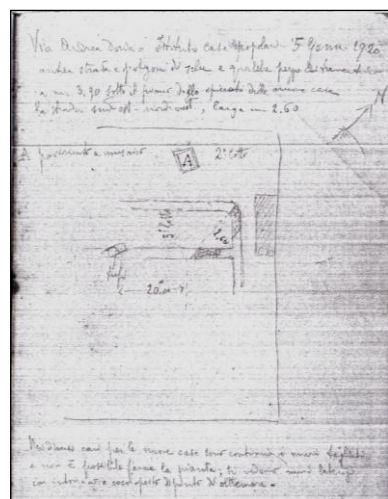 Via Andrea Doria - Istituto case popolari 5 Genn 1920
antica strada a poligoni di selce e qualche pezzo di
a m. 3,90 sotto il piano dello spiccato delle nuove case
la strada sud est - nord ovest, larga m 2.60
N
A pavimento a mosaico
A
2° lotto
3° lotto
2.60
20 m
Nei diversi cavi per le nuove case sono continui i muri tagliati
e non è possibile farne la pianta; si vedono muri laterizi
con intonaci e cocciopesto dipinto d'oltremare.